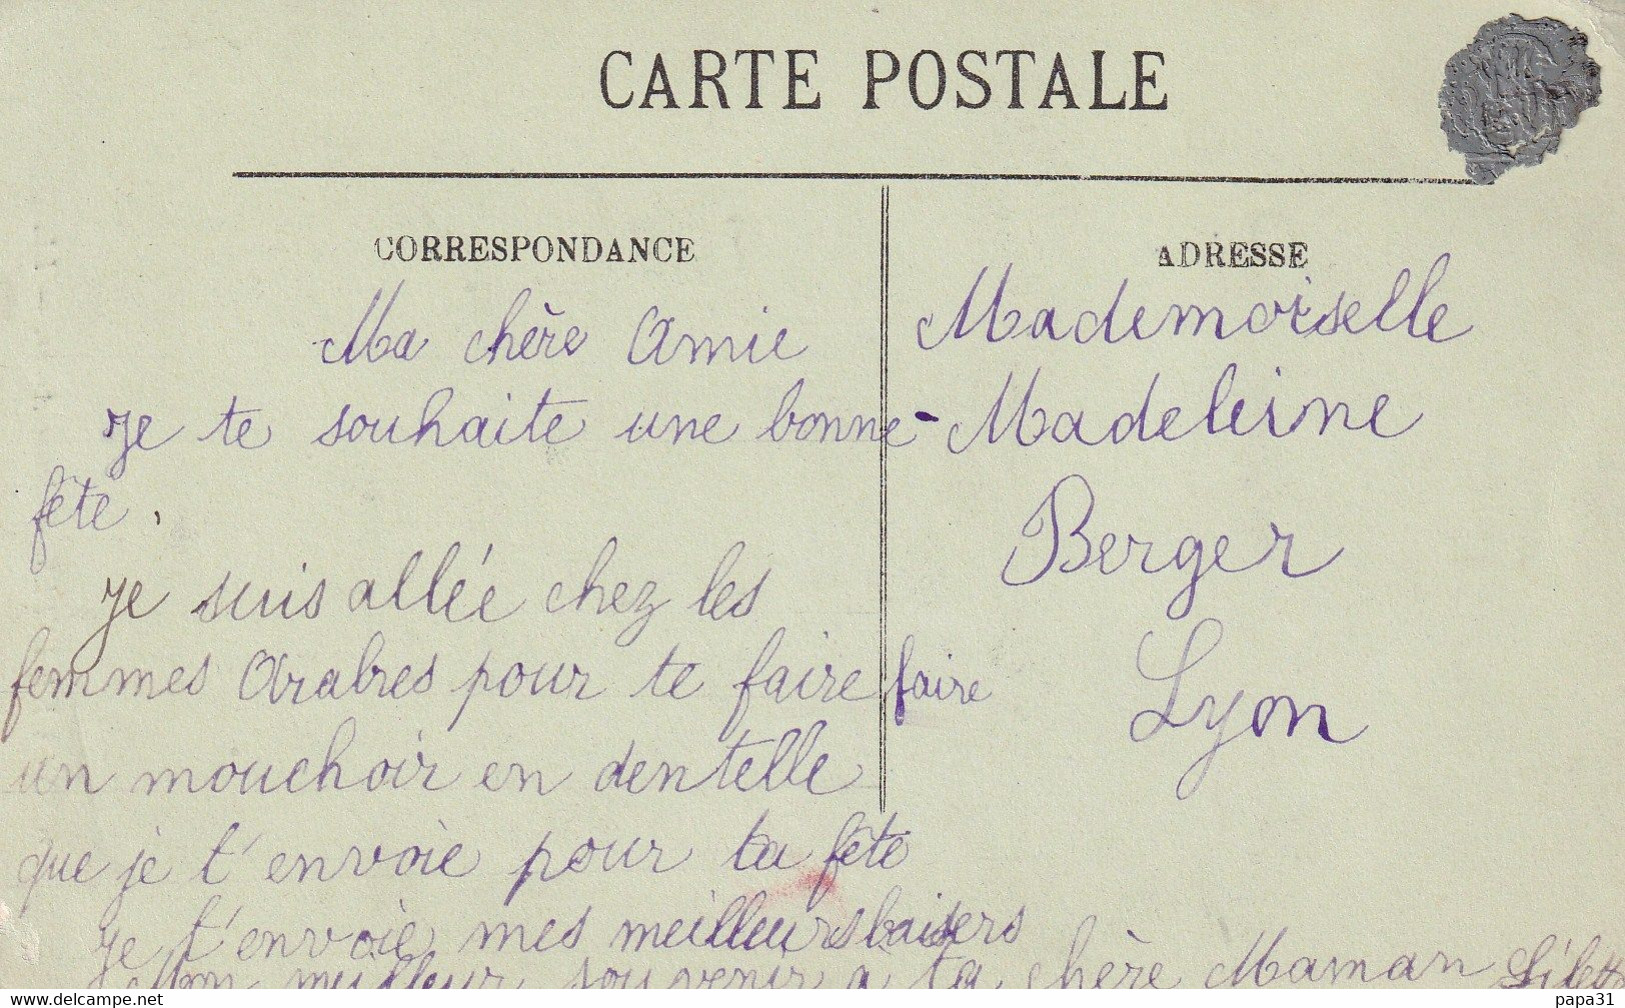 CARTE POSTALE
CORRESPONDANCE
Ma chère Amie
je te souhaite une bonne
fête.
je suis allée chez les
femmes Arabes pour te faire faire
un mouchoir en dentelle
que je t'envoie pour ta fête
je t'envoie mes meilleurs baisers
Mon meilleur souvenir à ta chère Maman
ADRESSE
Mademoiselle
Madeleine
Berger
Lyon
www.delcampe.net
papa31